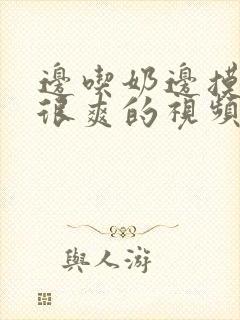 邊喫奶邊摸
很爽的視頻
與人游